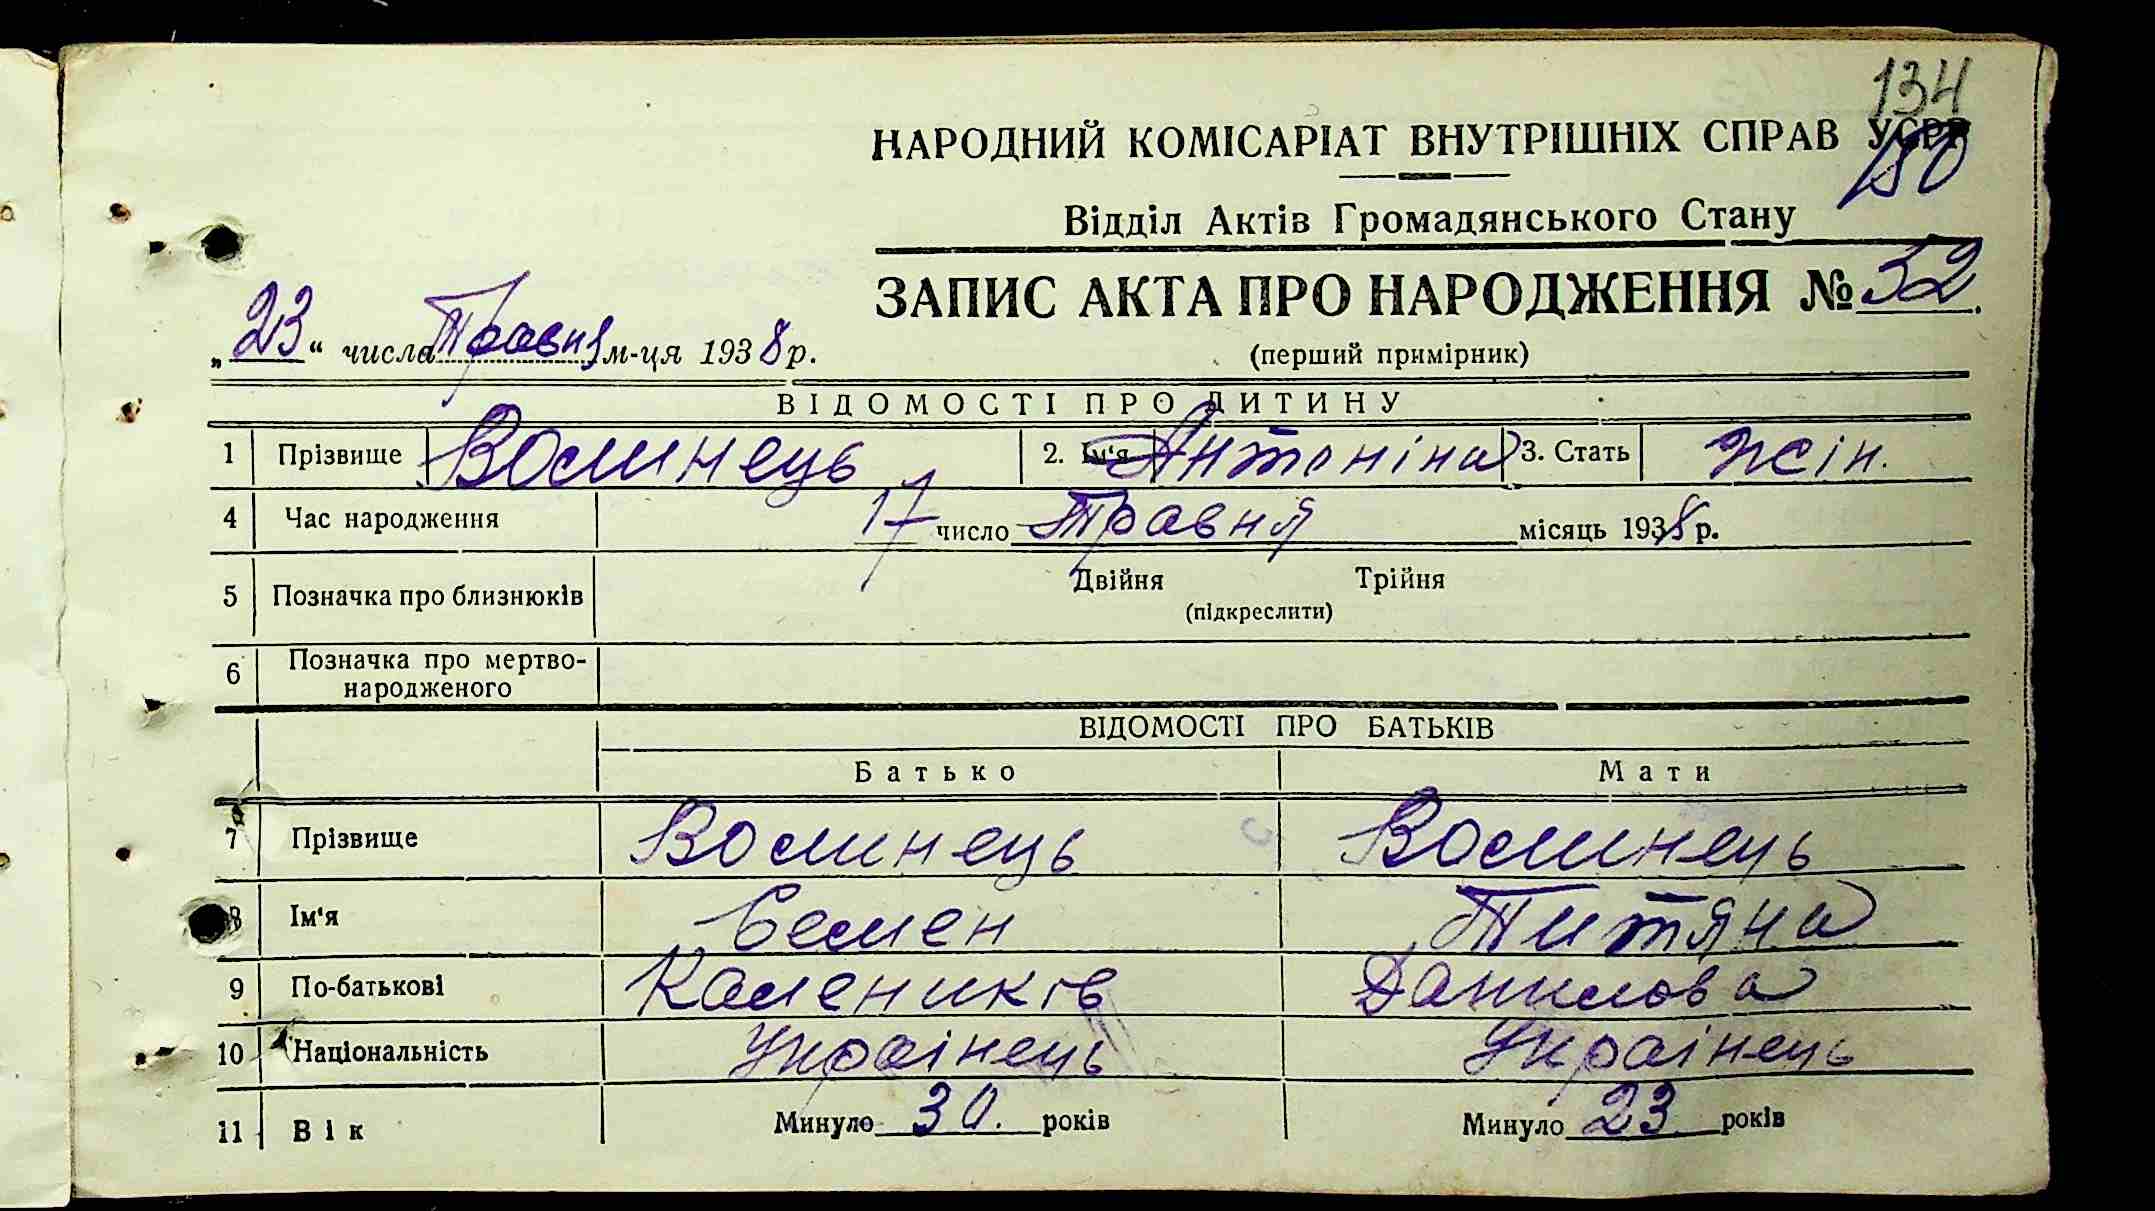 134
НАРОДНИЙ КОМІСАРІАТ ВНУТРІШНІХ СПРАВ УСРР
150
Відділ Актів Громадянського Стану
ЗАПИС АКТА ПРО НАРОДЖЕННЯ № 52.
„23“ числа Травня м-ця 1938 р.
(перший примірник)
ВІДОМОСТІ ПРО ДИТИНУ
1 Прізвище Волинець 2. Ім'я Антоніна 3. Стать жін.
4 Час народження 17 число Травня місяць 1938 р.
5 Позначка про близнюків Двійня Трійня
(підкреслити)
6 Позначка про мертво-
народженого
ВІДОМОСТІ ПРО БАТЬКІВ
Батько Мати
7 Прізвище Волинець Волинець
8 Ім'я Семен Титяна
9 По-батькові Калеників Данилова
10 Національність Українець Українець
11 Вік Минуло 30. років Минуло 23 років